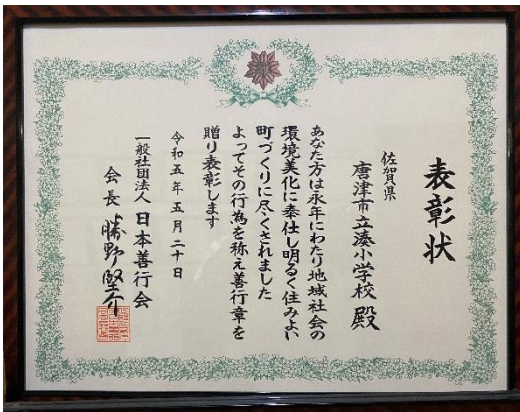 表彰状
佐賀県
唐津市立湊小学校 殿
あなた方は永年にわたり地域社会の
環境美化に奉仕し明るく住みよい
町づくりに尽くされました
よってその行為を称え善行章を
贈り表彰します
令和五年五月二十日
一般社団法人 日本善行会
会長 勝野堅介